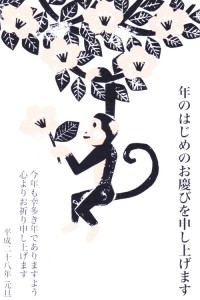 年のはじめのお慶びを申し上げます
今年も幸多き年でありますよう
心よりお祈り申し上げます
平成二十八年 元旦